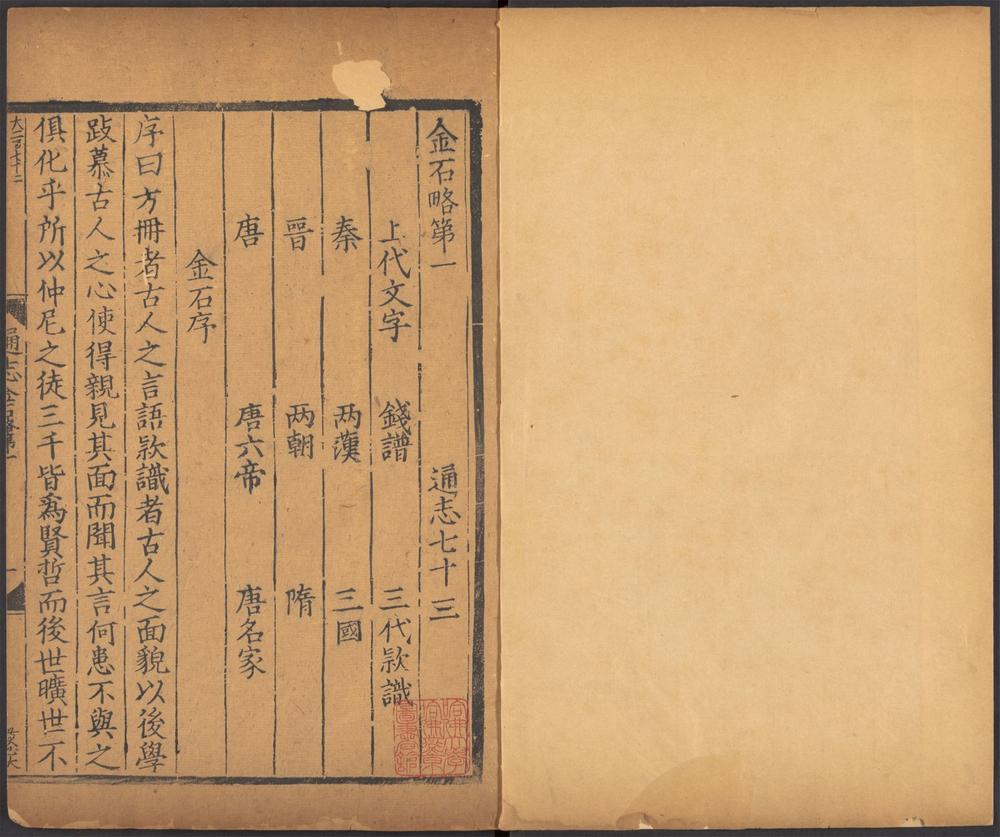 金石略第一 通志七十三
上代文字 錢譜 三代欵識
秦 两漢 三國
晉 两朝 隋
唐 唐六帝 唐名家
金石序
序曰方冊者古人之言語欵識者古人之面貌以後學
跂慕古人之心使得親見其面而聞其言何患不與之
俱化乎所以仲尼之徒三千皆爲賢哲而後世曠世不
大二百七十二
通志金石略第一
一